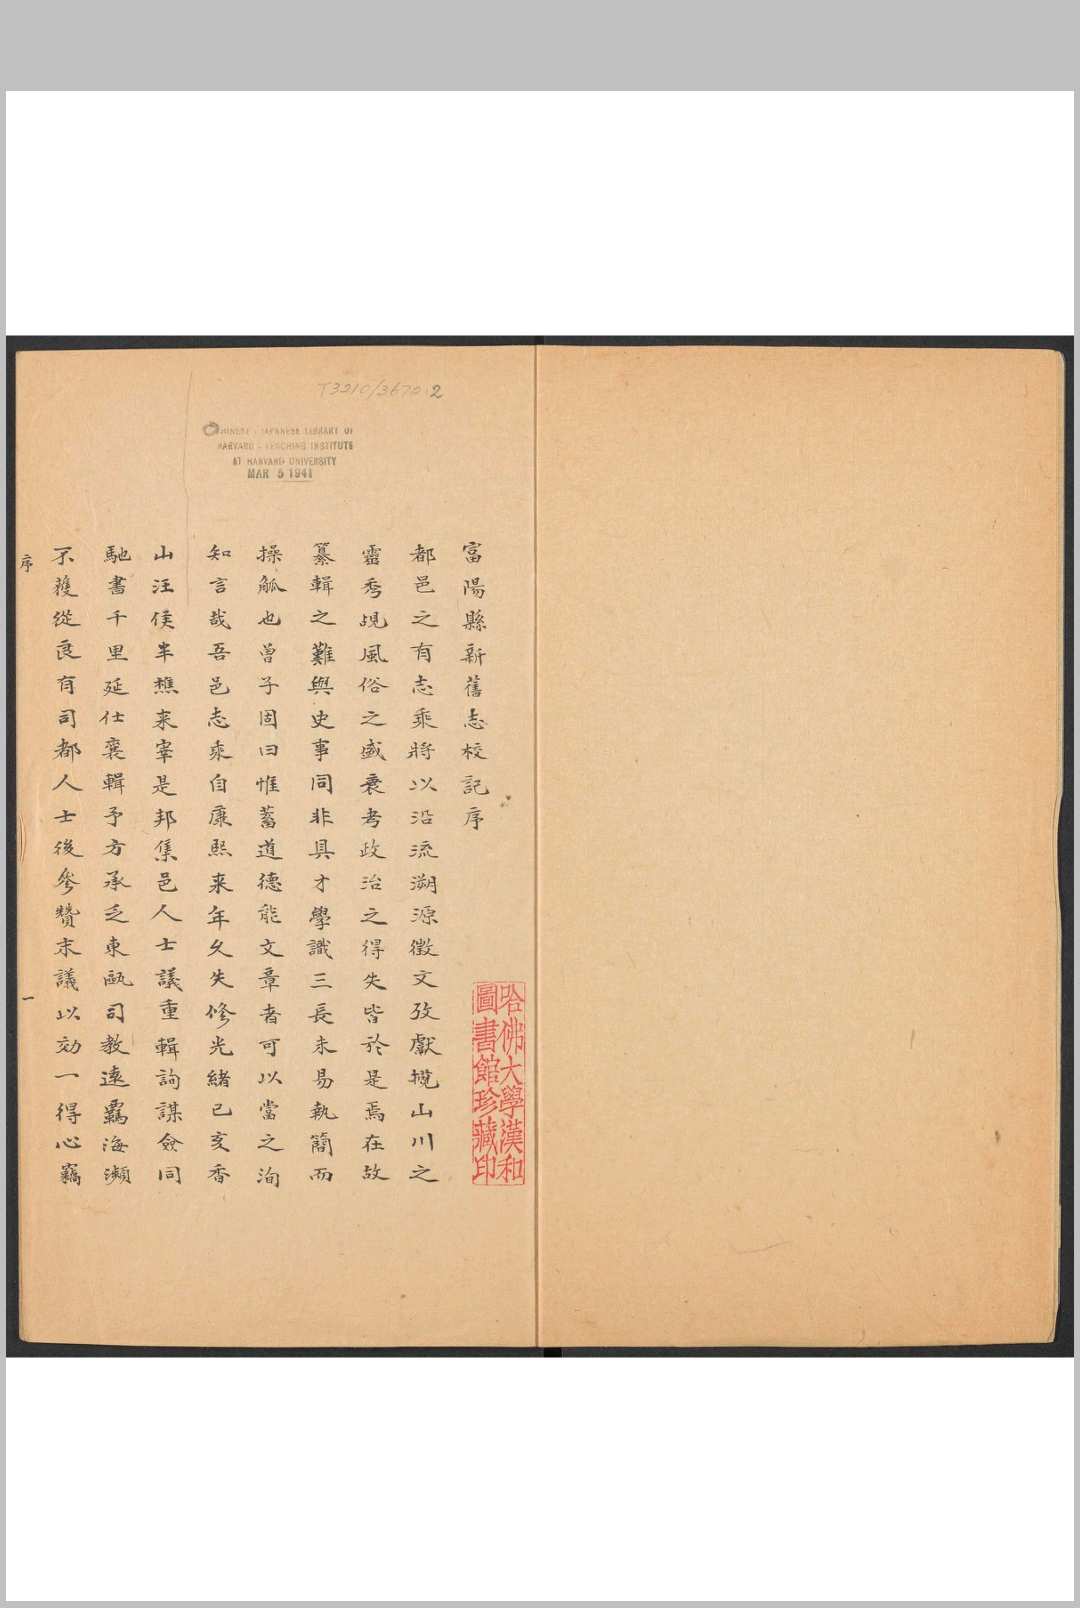 T3210/3670.2
CHINESE-JAPANESE LIBRARY OF
HARVARD-YENCHING INSTITUTE
AT HARVARD UNIVERSITY
MAR 5 1941
富陽縣新舊志校記序
都邑之有志乘將以沿流溯源徵文攷獻攬山川之
靈秀覘風俗之盛衰考政治之得失皆於是焉在故
纂輯之難與史事同非具才學識三長未易執簡而
操觚也曾子固曰惟蓄道德能文章者可以當之洵
知言哉吾邑志乘自康熙来年久失修光緒己亥香
山汪侯半樵来宰是邦集邑人士議重輯詢謀僉同
馳書千里延仕襄輯予方承乏東甌司教遠羈海瀕
不獲從良有司都人士後參贊末議以効一得心竊
序
一
哈佛大學漢和
圖書館珍藏印